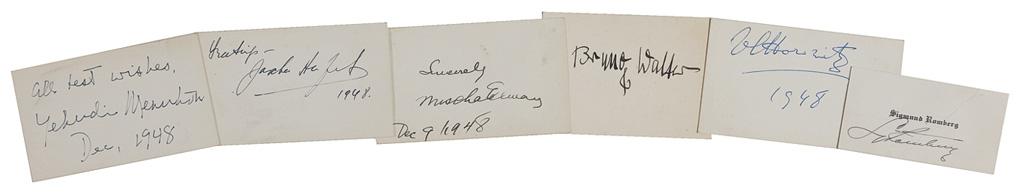 All best wishes,
Yehudi Menuhin
Dec, 1948
Greetings -
Jascha Heifetz
1948.
Sincerely
Mischa Elman
Dec 9 1948
Bruno Walter
V Horowitz
1948
Sigmund Romberg
S Romberg